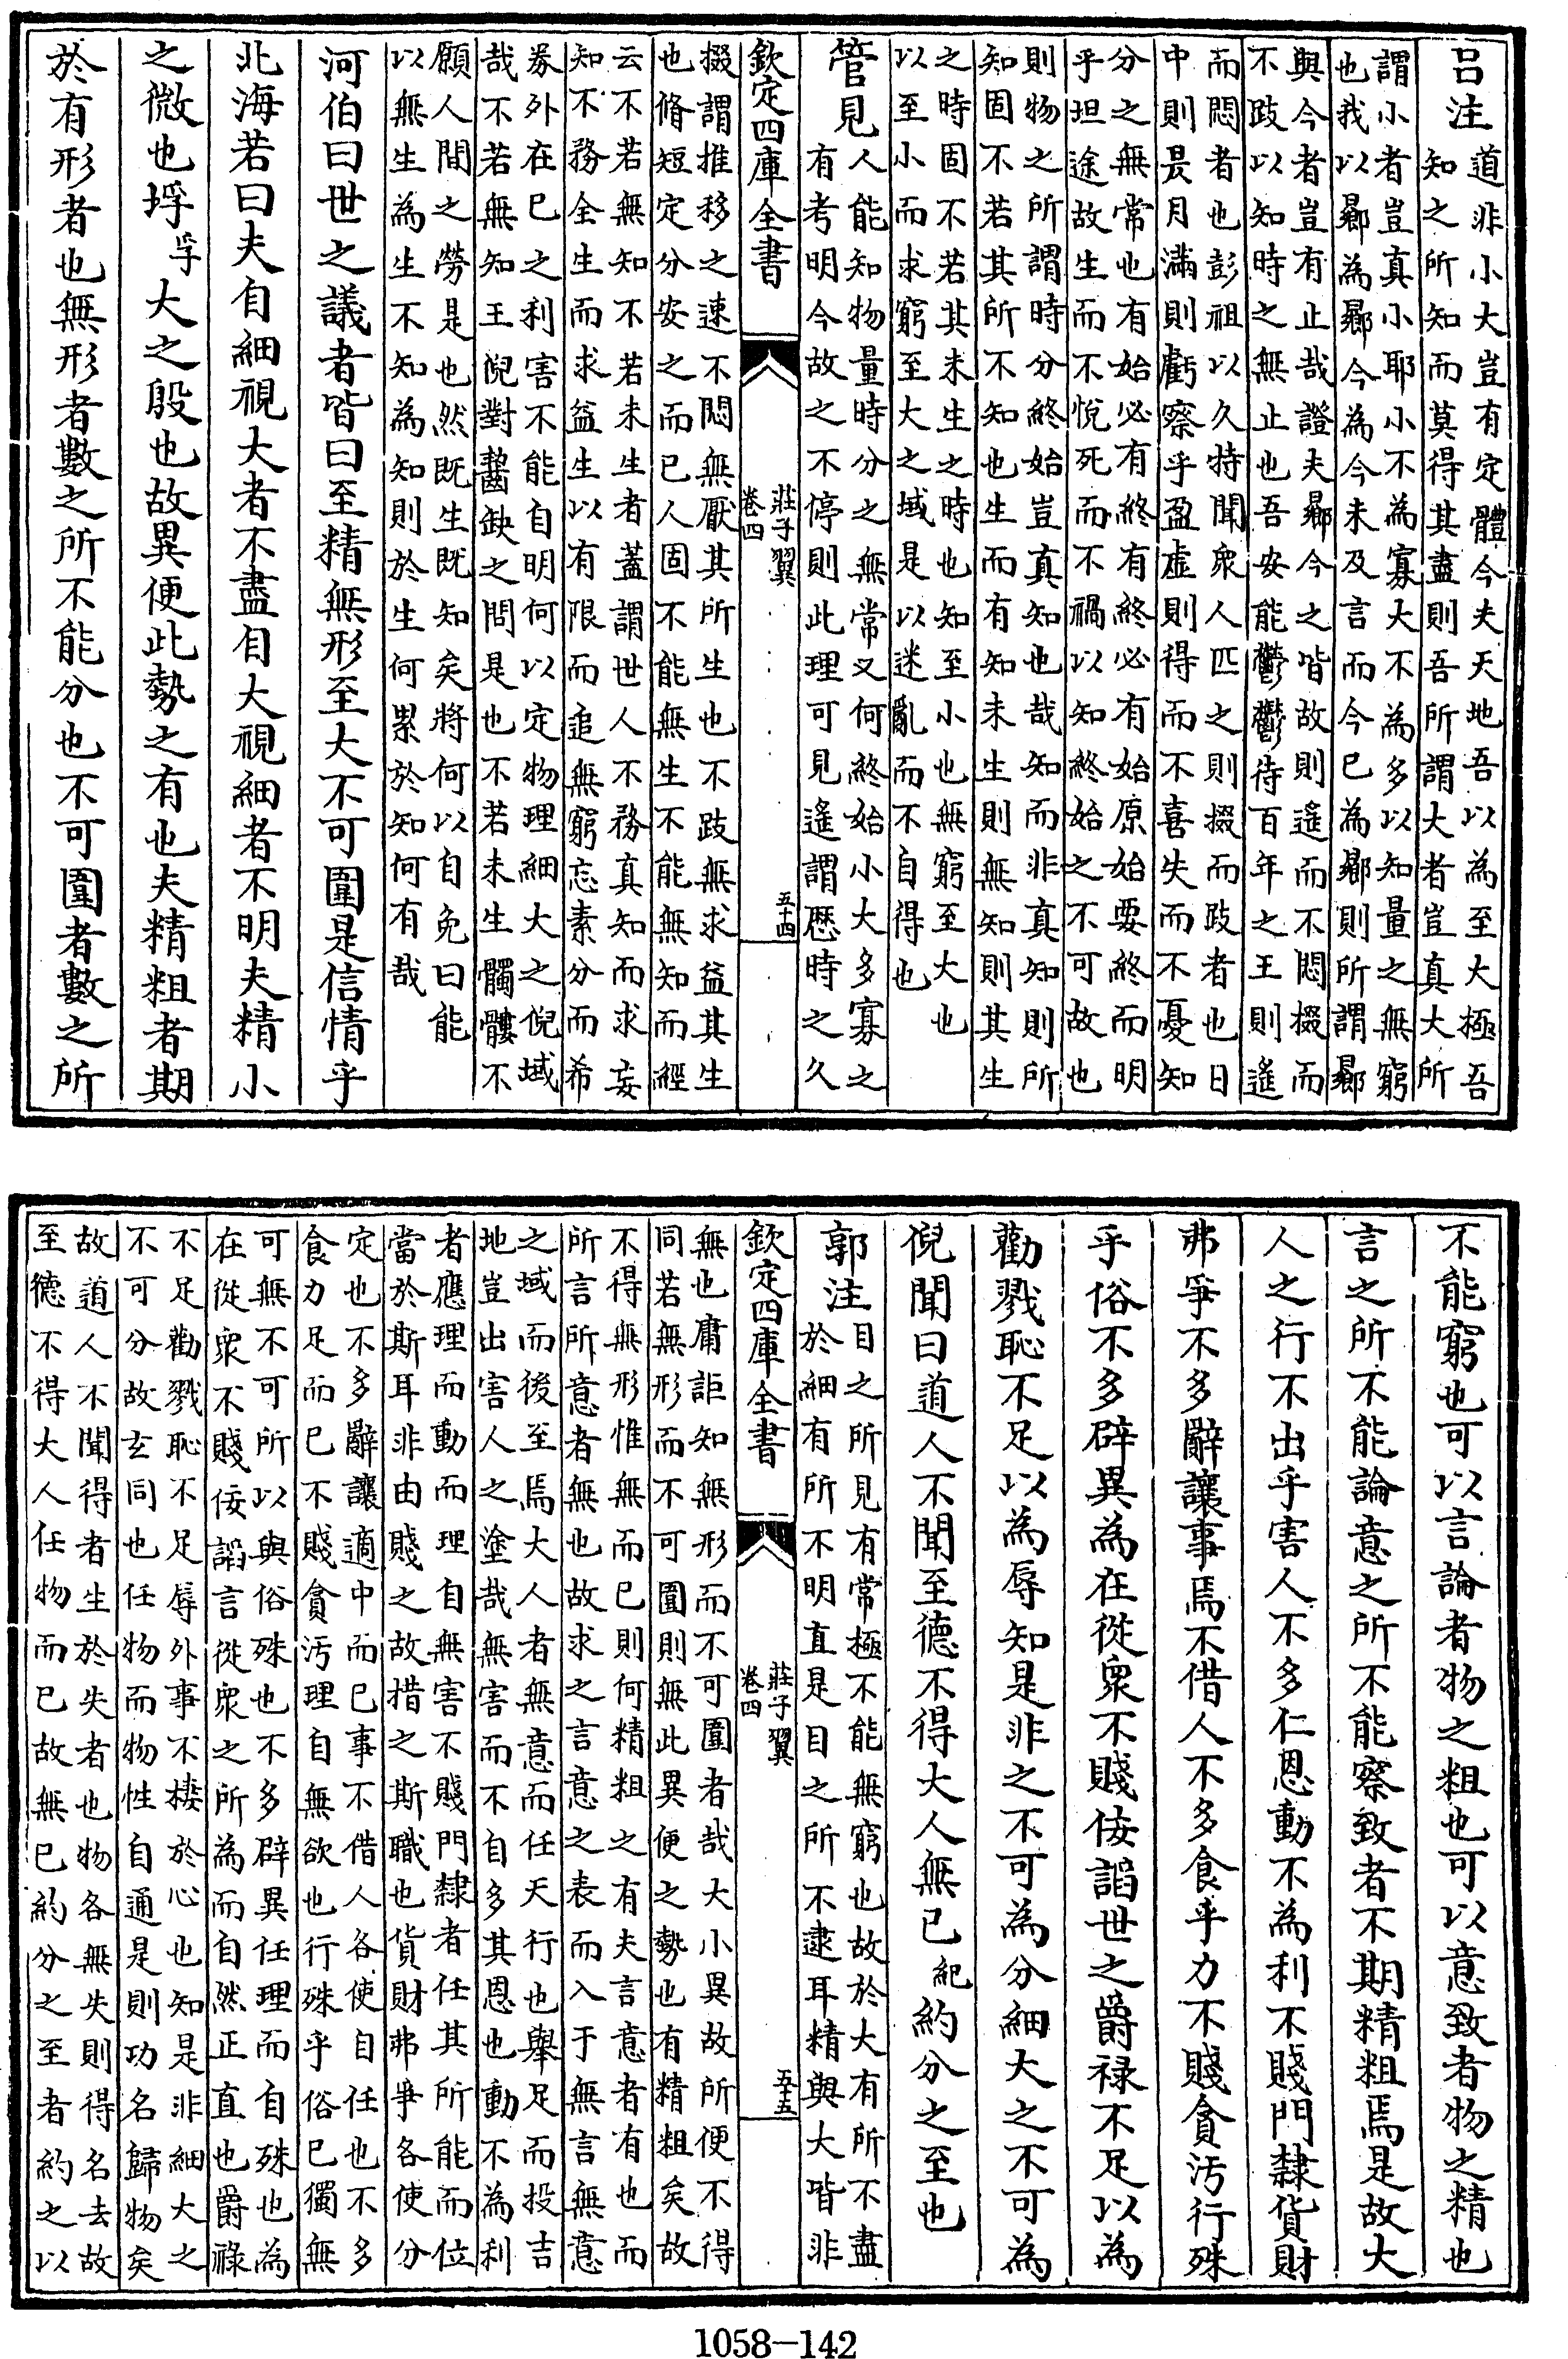 呂注道非小大豈有定體今夫天地吾以為至大極吾
知之所知而莫得其盡則吾所謂大者豈真大所
謂小者豈真小耶小不為寡大不為多以知量之無窮
也我以曏為曏今為今未及言而今已為曏則所謂曏
與今者豈有止哉證夫曏今之皆故則遙而不悶掇而
不跂以知時之無止也吾安能鬱鬱待百年之王則遙
而悶者也彭祖以久特聞衆人匹之則掇而跂者也日
中則昃月滿則虧察乎盈虛則得而不喜失而不憂知
分之無常也有始必有終有終必有始原始要終而明
乎坦途故生而不悅死而不禍以知終始之不可故也
則物之所謂時分終始豈真知也哉知而非真知則所
知固不若其所不知也生而有知未生則無知則其生
之時固不若其未生之時也知至小也無窮至大也
以至小而求窮至大之域是以迷亂而不自得也
管見人能知物量時分之無常又何終始小大多寡之
有考明今故之不停則此理可見遙謂歷時之久
欽定四庫全書
莊子翼
卷四
五十四
掇謂推移之速不悶無厭其所生也不跂無求益其生
也脩短定分安之而已人固不能無生不能無知而經
云不若無知不若未生者蓋謂世人不務真知而求妄
知不務全生而求益生以有限而追無窮忘素分而希
券外在已之利害不能自明何以定物理細大之倪域
哉不若無知王倪對齧缺之問是也不若未生髑髏不
願人間之勞是也然既生既知矣將何以自免曰能
以無生為生不知為知則於生何累於知何有哉
河伯曰世之議者皆曰至精無形至大不可圍是信情乎
北海若曰夫自細視大者不盡自大視細者不明夫精小
之微也垺孚大之殷也故異便此勢之有也夫精粗者期
於有形者也無形者數之所不能分也不可圍者數之所
不能窮也可以言論者物之粗也可以意致者物之精也
言之所不能論意之所不能察致者不期精粗焉是故大
人之行不出乎害人不多仁恩動不為利不賤門隸貨財
弗爭不多辭讓事焉不借人不多食乎力不賤貪汚行殊
乎俗不多辟異為在從衆不賤佞諂世之爵祿不足以為
勸戮恥不足以為辱知是非之不可為分細大之不可為
倪聞曰道人不聞至德不得大人無已紀約分之至也
郭注目之所見有常極不能無窮也故於大有所不盡
於細有所不明直是目之所不逮耳精與大皆非
欽定四庫全書
莊子翼
卷四
五十五
無也庸詎知無形而不可圍者哉大小異故所便不得
同若無形而不可圍則無此異便之勢也有精粗矣故
不得無形惟無而已則何精粗之有夫言意者有也而
所言所意者無也故求之言意之表而入于無言無意
之域而後至焉大人者無意而任天行也舉足而投吉
地豈出害人之塗哉無害而不自多其恩也動不為利
者應理而動而理自無害不賤門隸者任其所能而位
當於斯耳非由賤之故措之斯職也貨財弗爭各使分
定也不多辭讓適中而已事不借人各使自任也不多
食力足而已不賤貪汚理自無欲也行殊乎俗已獨無
可無不可所以與俗殊也不多辟異任理而自殊也為
在從衆不賤佞諂言從衆之所為而自然正直也爵祿
不足勸戮恥不足辱外事不棲於心也知是非細大之
不可分故玄同也任物而物性自通是則功名歸物矣
故道人不聞得者生於失者也物各無失則得名去故
至德不得大人任物而已故無已約分之至者約之以
1058-142